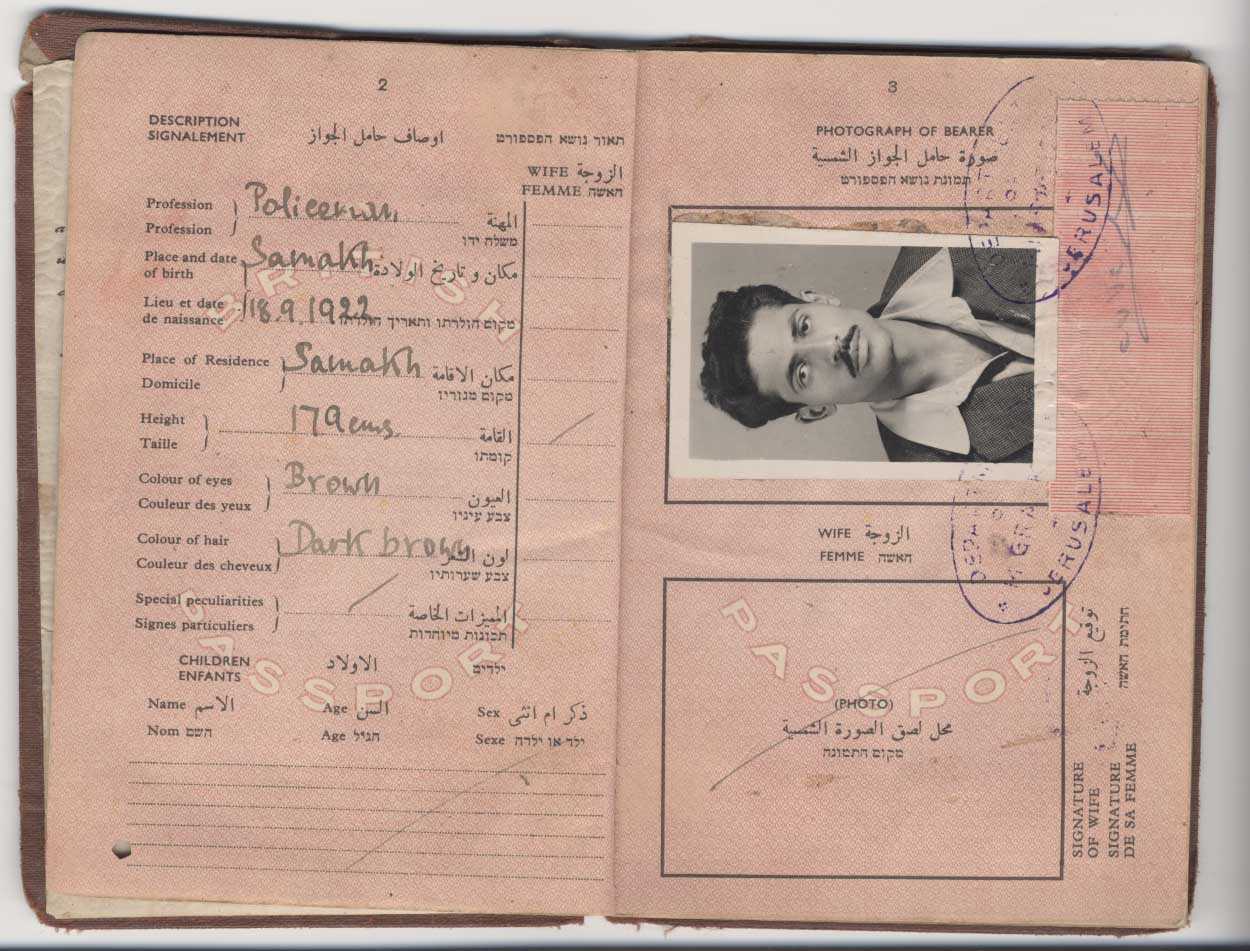 2
DESCRIPTION
SIGNALEMENT
اوصاف حامل الجواز
תאור נושא הפספורט
WIFE الزوجة
FEMME האשה
Profession
Profession
Policeman
المهنة
משלח ידו
Place and date
of birth
Samakh
مكان و تاريخ الولادة
Lieu et date
de naissance
18.9.1922
מקום הולדתו ותאריך הולדתו
Place of Residence
Domicile
Samakh
مكان الاقامة
מקום מגוריו
Height
Taille
179 cms.
القامة
קומתו
Colour of eyes
Couleur des yeux
Brown
العيون
צבע עיניו
Colour of hair
Couleur des cheveux
Dark brown
لون الشعر
צבע שערותיו
Special peculiarities
Signes particuliers
المميزات الخاصة
תכונות מיוחדות
BRITISH
PASSPORT
CHILDREN
ENFANTS
الاولاد
ילדים
Name الاسم
Age السن
Sex ذكر ام انثى
Nom השם
Age הגיל
Sexe ילד או ילדה
3
PHOTOGRAPH OF BEARER
صورة حامل الجواز الشمسية
תמונת נושא הפספורט
JERUSALEM
WIFE الزوجة
FEMME האשה
JERUSALEM
PASSPORT
(PHOTO)
محل لصق الصورة الشمسية
מקום התמונה
توقيع الزوجة
חתימת האשה
SIGNATURE
OF WIFE
SIGNATURE
DE SA FEMME